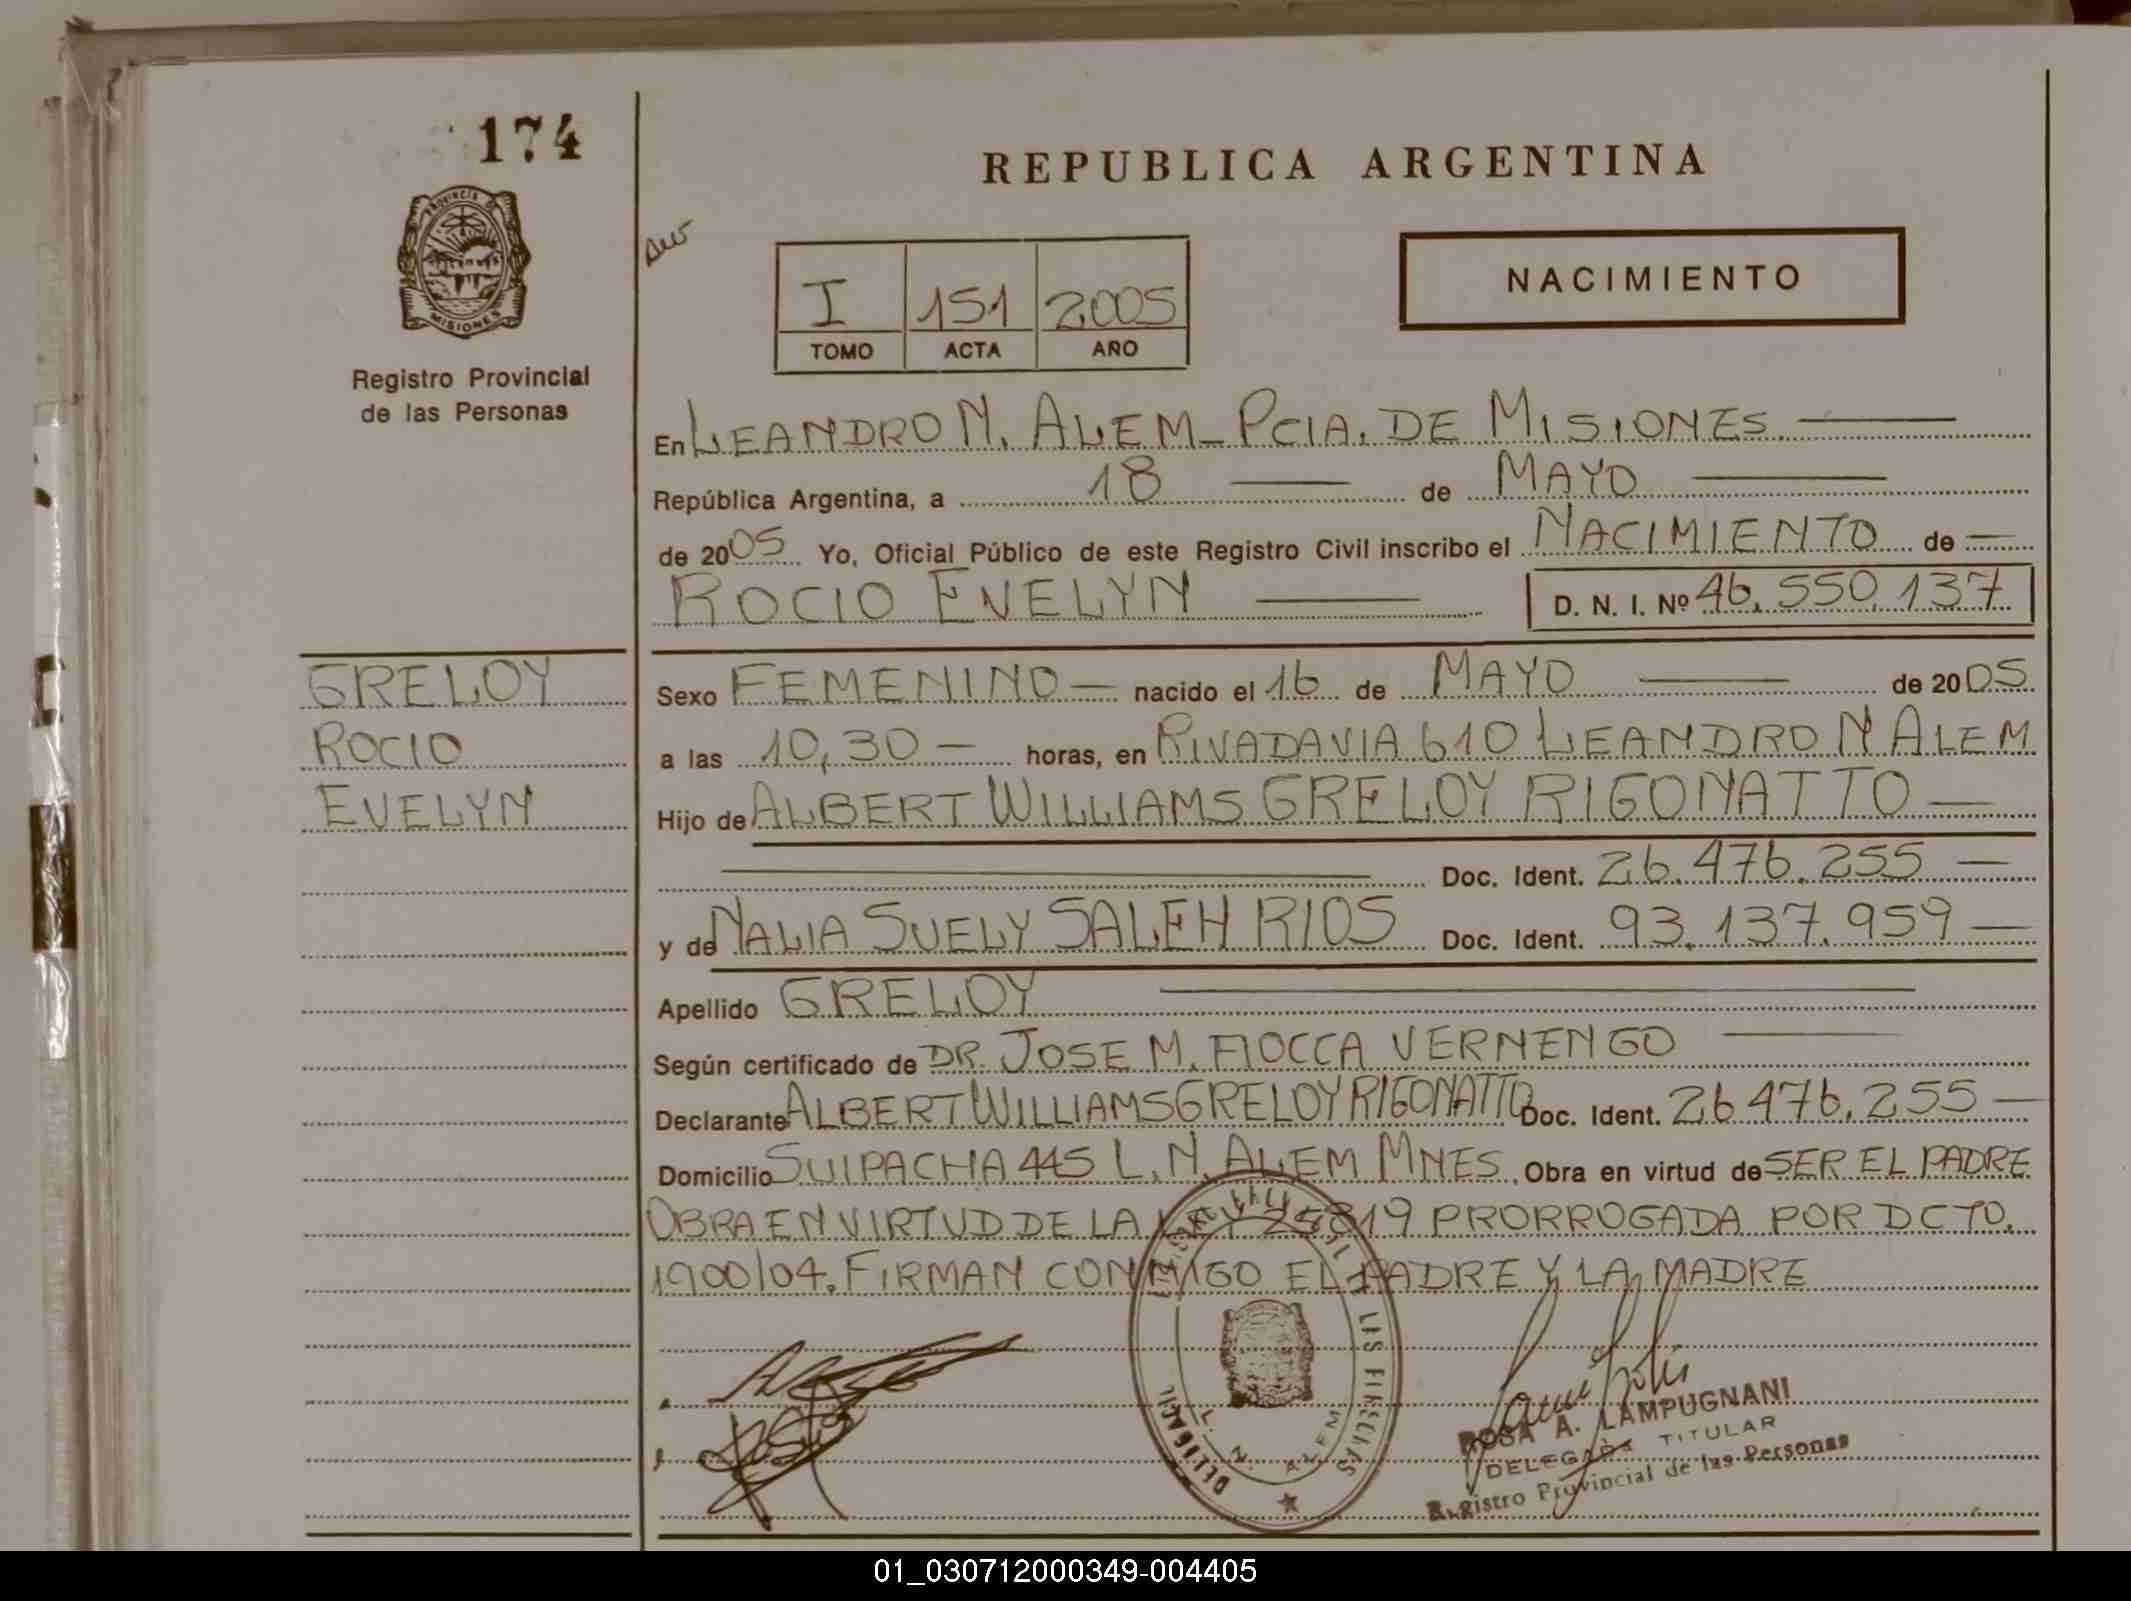 174
PROVINCIA DE
MISIONES
Registro Provincial
de las Personas
REPUBLICA ARGENTINA
I 151 2005
TOMO ACTA AÑO
NACIMIENTO
En LEANDRO N. ALEM_ PCIA. DE MISIONES.
República Argentina, a 18 de MAYO
de 2005 Yo, Oficial Público de este Registro Civil inscribo el NACIMIENTO de
ROCIO EVELYN D. N. I. Nº 46.550.137
GRELOY
ROCIO
EVELYN
Sexo FEMENINO — nacido el 16 de MAYO de 2005
a las 10,30 — horas, en RIVADAVIA 610 LEANDRO N ALEM
Hijo de ALBERT WILLIAMS GRELOY RIGONATTO —
Doc. Ident. 26.476.255 —
y de NALIA SUELY SALEH RIOS Doc. Ident. 93.137.959 —
Apellido GRELOY
Según certificado de DR. JOSE M. FIOCCA VERNENGO
Declarante ALBERT WILLIAMS GRELOY RIGONATTO Doc. Ident. 26.476.255 —
Domicilio SUIPACHA 445 L.N. ALEM MNES. Obra en virtud de SER EL PADRE
OBRA EN VIRTUD DE LA LEY 25819 PRORROGADA POR DCTO.
1900/04. FIRMAN CONMIGO EL PADRE Y LA MADRE
L. N. ALEM
ROSA A. LAMPUGNANI
DELEGADA TITULAR
Registro Provincial de las Personas
01_030712000349-004405